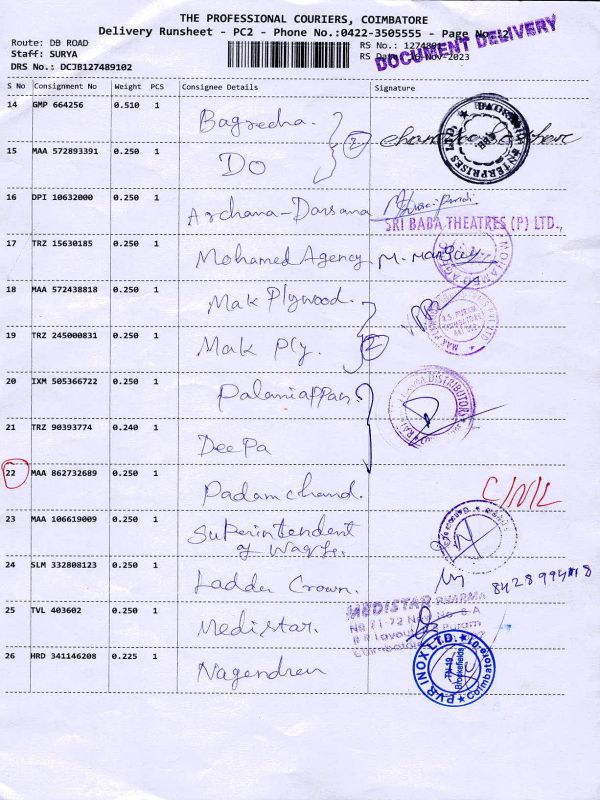 THE PROFESSIONAL COURIERS, COIMBATORE
Delivery Runsheet - PC2 - Phone No.:0422-3505555 - Page No.:2
DOCUMENT DELIVERY
Route: DB ROAD
Staff: SURYA
DRS No.: DCJB127489102
RS No.: 127489
RS Date: Nov-2023
S No Consignment No Weight PCS Consignee Details Signature
14 GMP 664256 0.510 1 Bagrecha.
15 MAA 572893391 0.250 1 Do
2
ENTERPRISES
16 DPI 10632000 0.250 1 Archana-Darsana
SRI BABA THEATRES (P) LTD.,
17 TRZ 15630185 0.250 1 Mohamed Agency.
18 MAA 572438818 0.250 1 Mak Plywood.
19 TRZ 245000831 0.250 1 Mak Ply.
2
20 IXM 505366722 0.250 1 Palaniappan.
DISTRIBUTORS
21 TRZ 90393774 0.240 1 DeePa
22 MAA 862732689 0.250 1 Padam chand.
23 MAA 106619009 0.250 1 Superintendent
of Wagfs.
24 SLM 332808123 0.250 1 Ladder Crown.
25 TVL 403602 0.250 1 Medistar.
MEDISTAR PHARMA
26 HRD 341146208 0.225 1 Nagendren
PVR INOX LTD.
Brookefields
Coimbatore-01